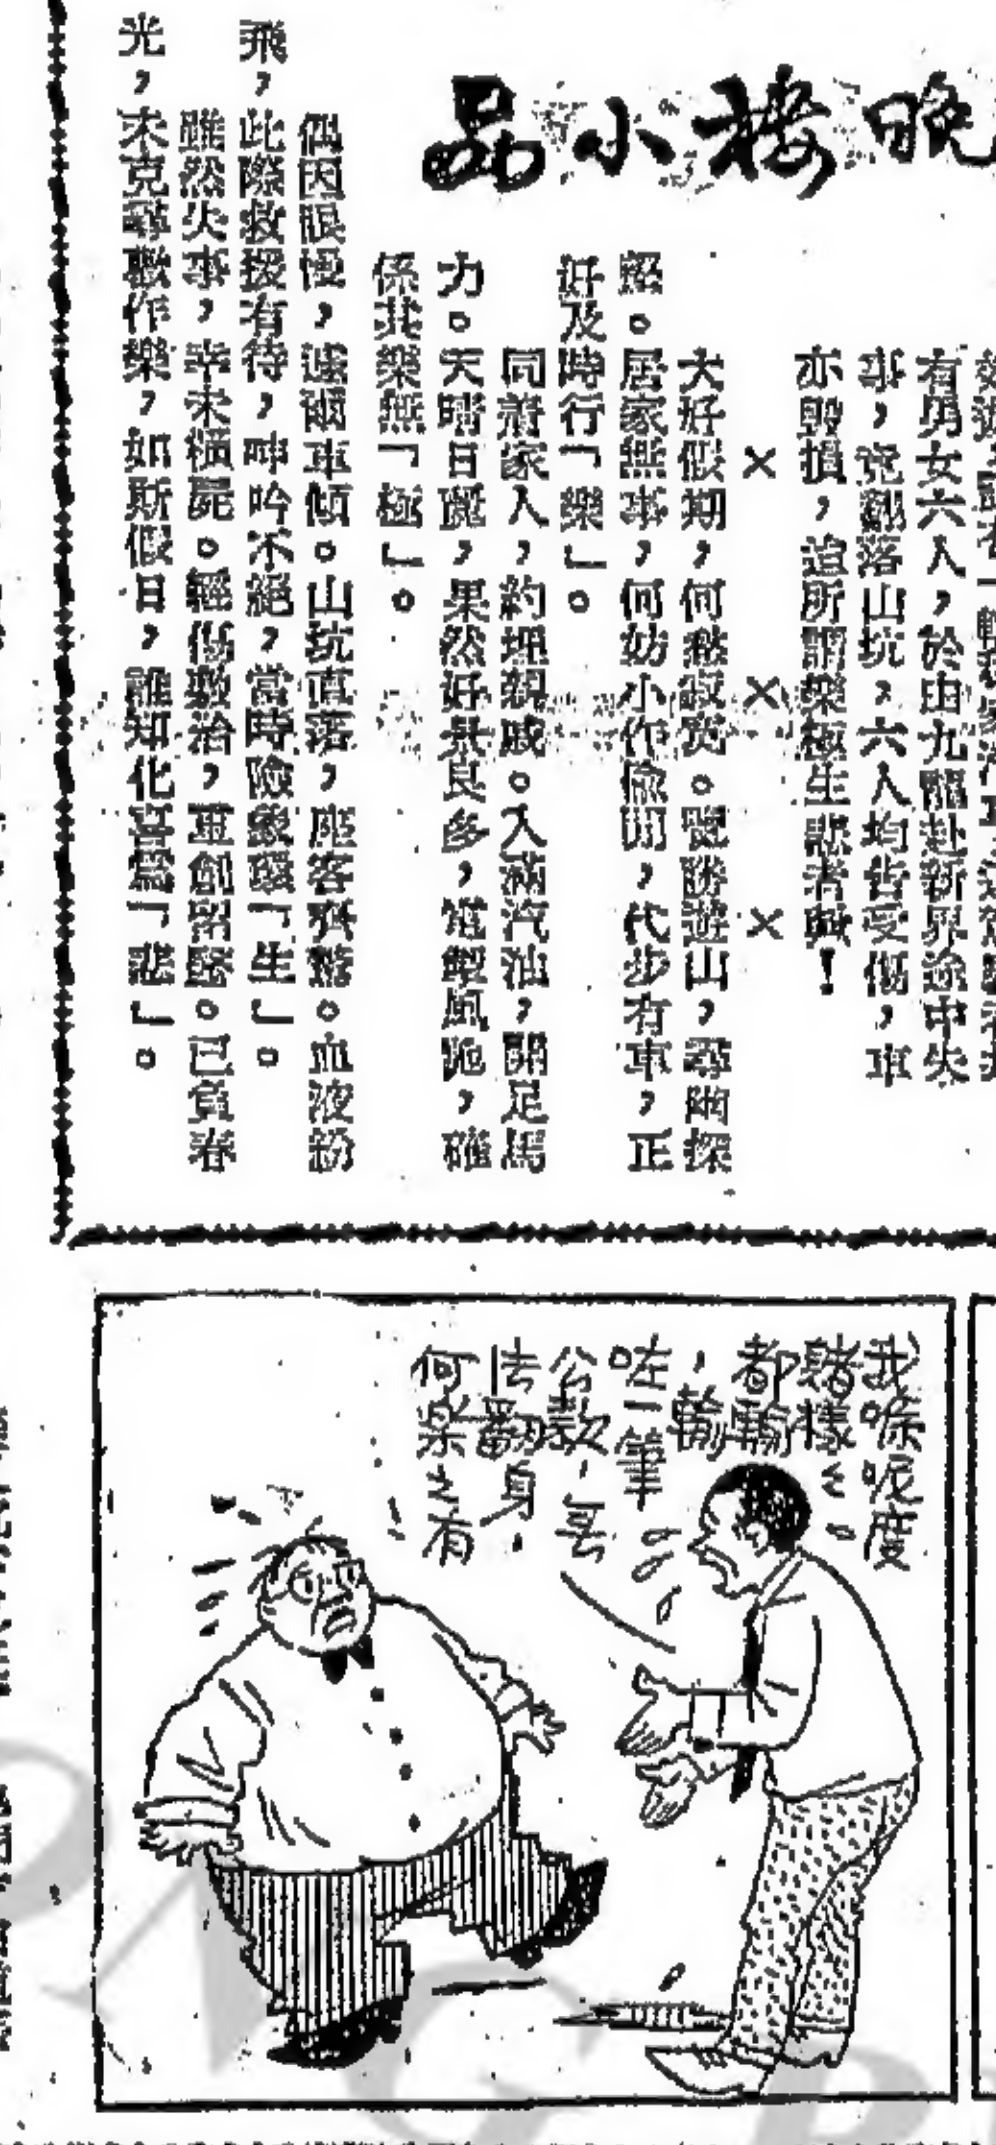 晚樓小品
有男女六人，於由九龍赴新界途中失
事，竟翻落山坑，六人均告受傷，車
亦毀損，這所謂樂極生悲者歟！
× × ×
大好假期，何愁寂寞。覽勝遊山，尋幽探
照。居家無事，何妨小作偷閒，代步有車，正
好及時行「樂」。
同着家人，約埋親戚。入滿汽油，開足馬
力。天晴日麗，果然好景良多，電掣風馳，確
係其樂無「極」。
偶因眼慢，遽爾車傾。山坑直落，座客齊驚。血液紛
飛，此際救援有待，呻吟不絕，當時險象環「生」。
雖然失事，幸未橫屍。輕傷敷治，重創留醫。已負春
光，未克尋歡作樂，如斯假日，誰知化喜為「悲」。
我喺呢度
賭樣樣
都輸
，輸
咗一筆
公數，冇
法翻身，
何樂之有